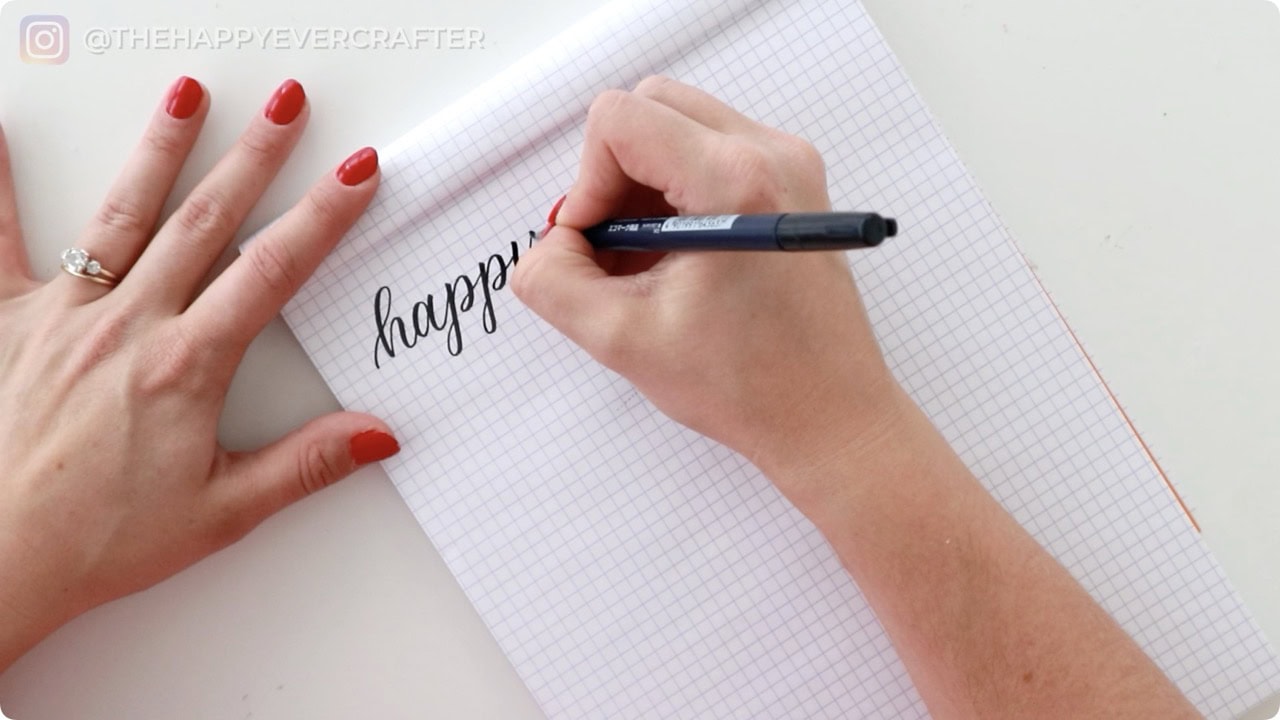 @THEHAPPYEVERCRAFTER
happy